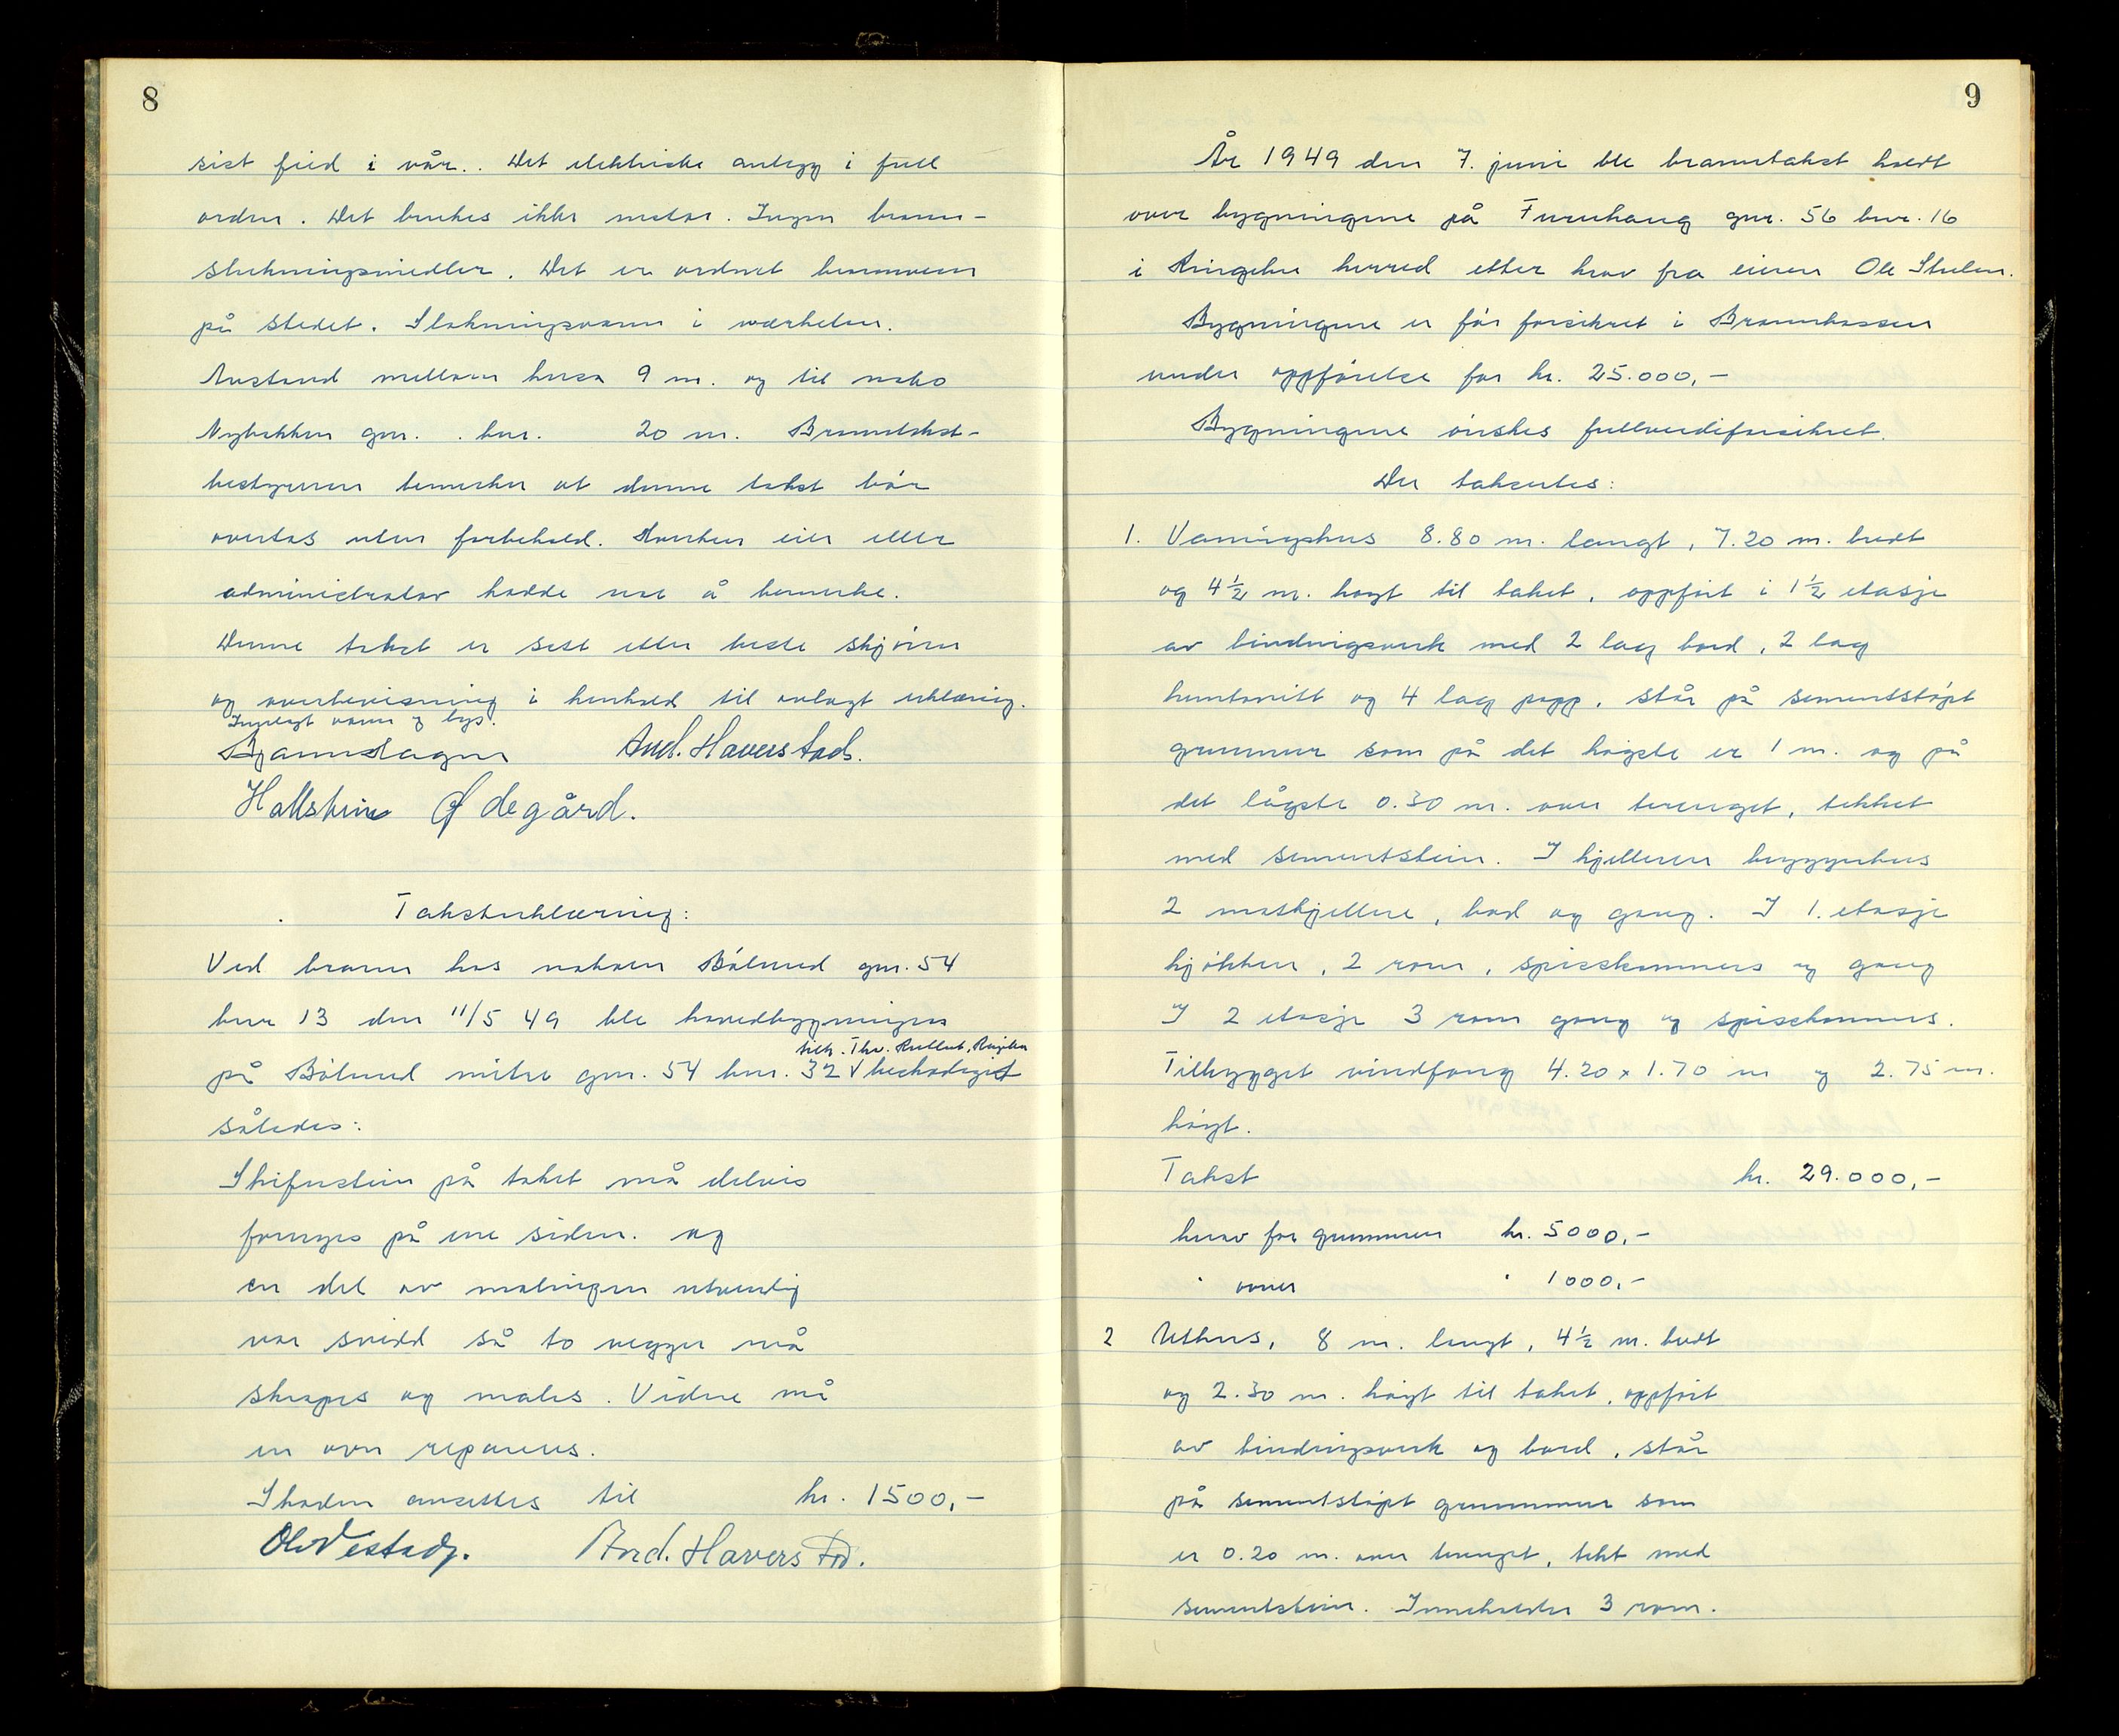 8
sist feid i vår.. Det elektriske anlegg i full
orden. Det brukes ikke motor. Ingen brann-
slukningsmidler. Det er ordnet brannvern
på stedet. Slokningsvann i nærheten.
Avstand mellom husa 9 m. og til nabo
Nybakken gnr. . bnr. 20 m. Branntakst-
bestyreren bemerker at denne takst bör
overtas uten forbehold. Hverken eier eller
administrator hadde noe å bemerke.
Denne takst er sett etter beste skjönn
og overbevisning i henhold til avlagt erklæring.
Innlagt vann og lys.
And. Haverstad.
Hallstein Ødegård.
Taksterklæring:
Ved brann hos naboen Bölund gnr. 54
bnr 13 den 11/5 49 ble hovedbygningen
tilh. Thv. Ringebu
på Bölund nitre gnr. 54 bnr. 32 V beskadiget
således:
Skiferstein på taket må delvis
fornyes på ene siden. og
en del av malingen utvendig
var svidd så to vegger må
skrapes og males. Videre må
en ovn repareres.
Skaden ansettes til kr. 1500,-
Ole Vestad. And. Haverstad.
9
År 1949 den 7. juni ble branntakst holdt
over bygningene på Furuhaug gnr. 56 bnr. 16
i Ringebu herred etter krav fra eieren Ole Stulen.
Bygningene er för forsikret i Brannkassen
under oppförelse for kr. 25.000,-
Bygningene önskes fullverdiforsikret.
Der takseres:
1. Vaningshus 8.80 m. langt, 7.20 m. bredt
og 4½ m. högt til taket, oppfört i 1½ etasje
av bindingsverk med 2 lag bord, 2 lag
huntonitt og 4 lag papp, står på sementstöpt
grunnmur som på det högste er 1 m. og på
det lågste 0.30 m. over terrenget, tekket
med sementstein. I kjelleren bryggerhus
2 matkjellere, bad og gang. I 1. etasje
kjökken, 2 rom, spisskammers og gang
I 2 etasje 3 rom gang og spiskammers.
Tilbygget vindfang 4.20 x 1.70 m og 2.75 m.
högt.
Takst kr. 29.000,-
hvorav for grunnmuren kr. 5000,-
" ovner " 1000,-
2 Uthus, 8 m. langt, 4½ m. bredt
og 2.30 m. högt til taket, oppfört
av bindingsverk og bord, står
på sementstöpt grunnmur som
er 0.20 m. over terrenget, tekt med
sementstein. Inneholder 3 rom.